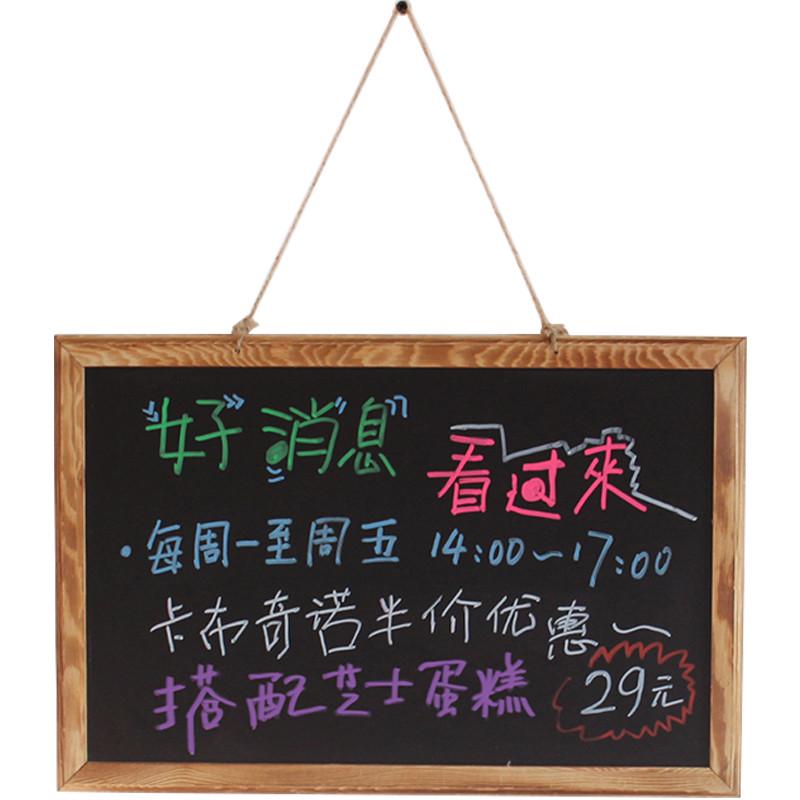 好消息
看过來
·每周一至周五 14:00~17:00
卡布奇诺半价优惠~
搭配芝士蛋糕 29元